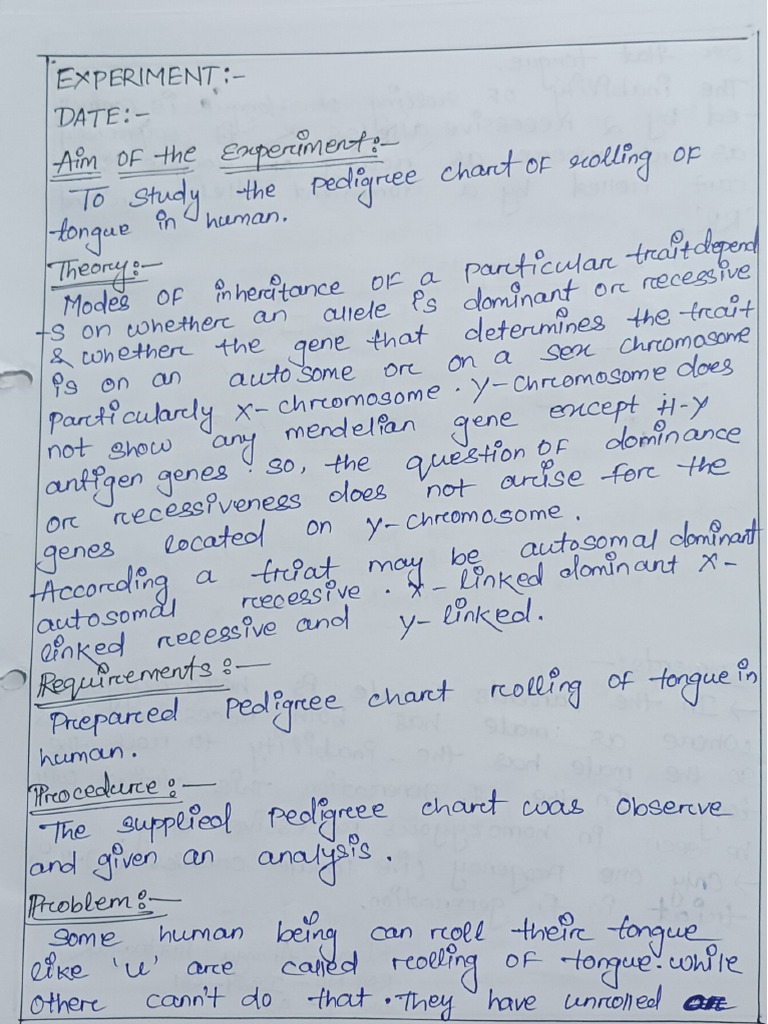 EXPERIMENT:-
DATE:-
Aim OF the Experiment:-
To study the pedigree chart OF rolling OF
tongue in human.
Theory:-
Modes OF inheritance OF a particular trait depend
s on whether an allele is dominant or recessive
& whether the gene that determines the trait
is on an autosome or on a sex chromosome
particularly X-chromosome. Y-chromosome does
not show any mendelian gene except H-Y
antigen genes. so, the question OF dominance
or recessiveness does not arise for the
genes located on Y-chromosome.
According a triat may be autosomal dominant
autosomal recessive. X-linked dominant X-
linked recessive and Y-linked.
Requirements:-
Prepared pedigree chart rolling of tongue in
human.
Procedure:-
The supplied pedigree chart was observe
and given an analysis.
Problem:-
Some human being can roll their tongue
like 'u' are called rolling OF tongue. while
other cann't do that. They have unrolled